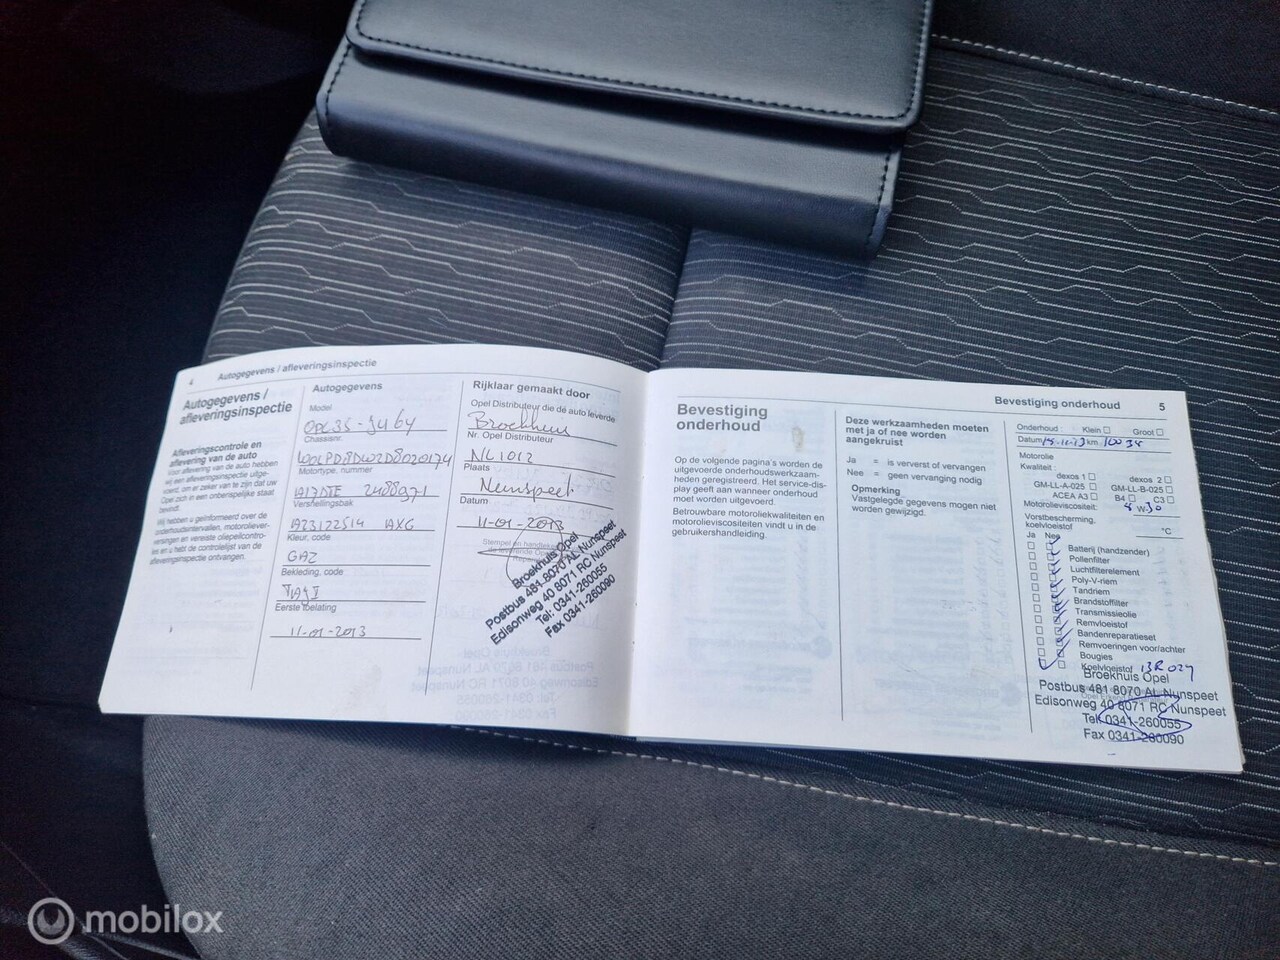 4 Autogegevens / afleveringsinspectie
Autogegevens /
afleveringsinspectie
Afleveringscontrole en
aflevering van de auto
Voor aflevering van de auto hebben
wij een afleveringsinspectie uitge-
voerd, om er zeker van te zijn dat uw
Opel zich in een onberispelijke staat
bevindt.
Wij hebben u geïnformeerd over de
onderhoudsintervallen, motoroliever-
versingen en vereiste oliepeilcontro-
les en u hebt de controlelijst van de
afleveringsinspectie ontvangen.
Autogegevens
Model
Chassisnr.
Motortype, nummer
Versnellingsbak
Kleur, code
GAZ
Bekleding, code
Eerste toelating
11-01-2013
Rijklaar gemaakt door
Opel Distributeur die de auto leverde
Broekhuis
Nr. Opel Distributeur
NL1012
Plaats
Nunspeet
Datum
11-01-2013
Broekhuis Opel
Postbus 481 8070 AL Nunspeet
Edisonweg 40 8071 RC Nunspeet
Tel: 0341-260055
Fax 0341-260090
Bevestiging onderhoud 5
Bevestiging
onderhoud
Op de volgende pagina's worden de
uitgevoerde onderhoudswerkzaam-
heden geregistreerd. Het service-dis-
play geeft aan wanneer onderhoud
moet worden uitgevoerd.
Betrouwbare motoroliekwaliteiten en
motorolieviscositeiten vindt u in de
gebruikershandleiding.
Deze werkzaamheden moeten
met ja of nee worden
aangekruist
Ja = is ververst of vervangen
Nee = geen vervanging nodig
Opmerking
Vastgelegde gegevens mogen niet
worden gewijzigd.
Onderhoud : Klein Groot
Datum km.
Motorolie
Kwaliteit :
dexos 1 dexos 2
GM-LL-A-025 GM-LL-B-025
ACEA A3 B4 C3
Motorolieviscositeit: 5 W 30
Vorstbescherming,
koelvloeistof °C
Ja Nee
Batterij (handzender)
Pollenfilter
Luchtfilterelement
Poly-V-riem
Tandriem
Brandstoffilter
Transmissieolie
Remvloeistof
Bandenreparatieset
Remvoeringen voor/achter
Bougies
Koelvloeistof
Broekhuis Opel
Postbus 481 8070 AL Nunspeet
Edisonweg 40 8071 RC Nunspeet
Tel: 0341-260055
Fax 0341-260090
mobilox